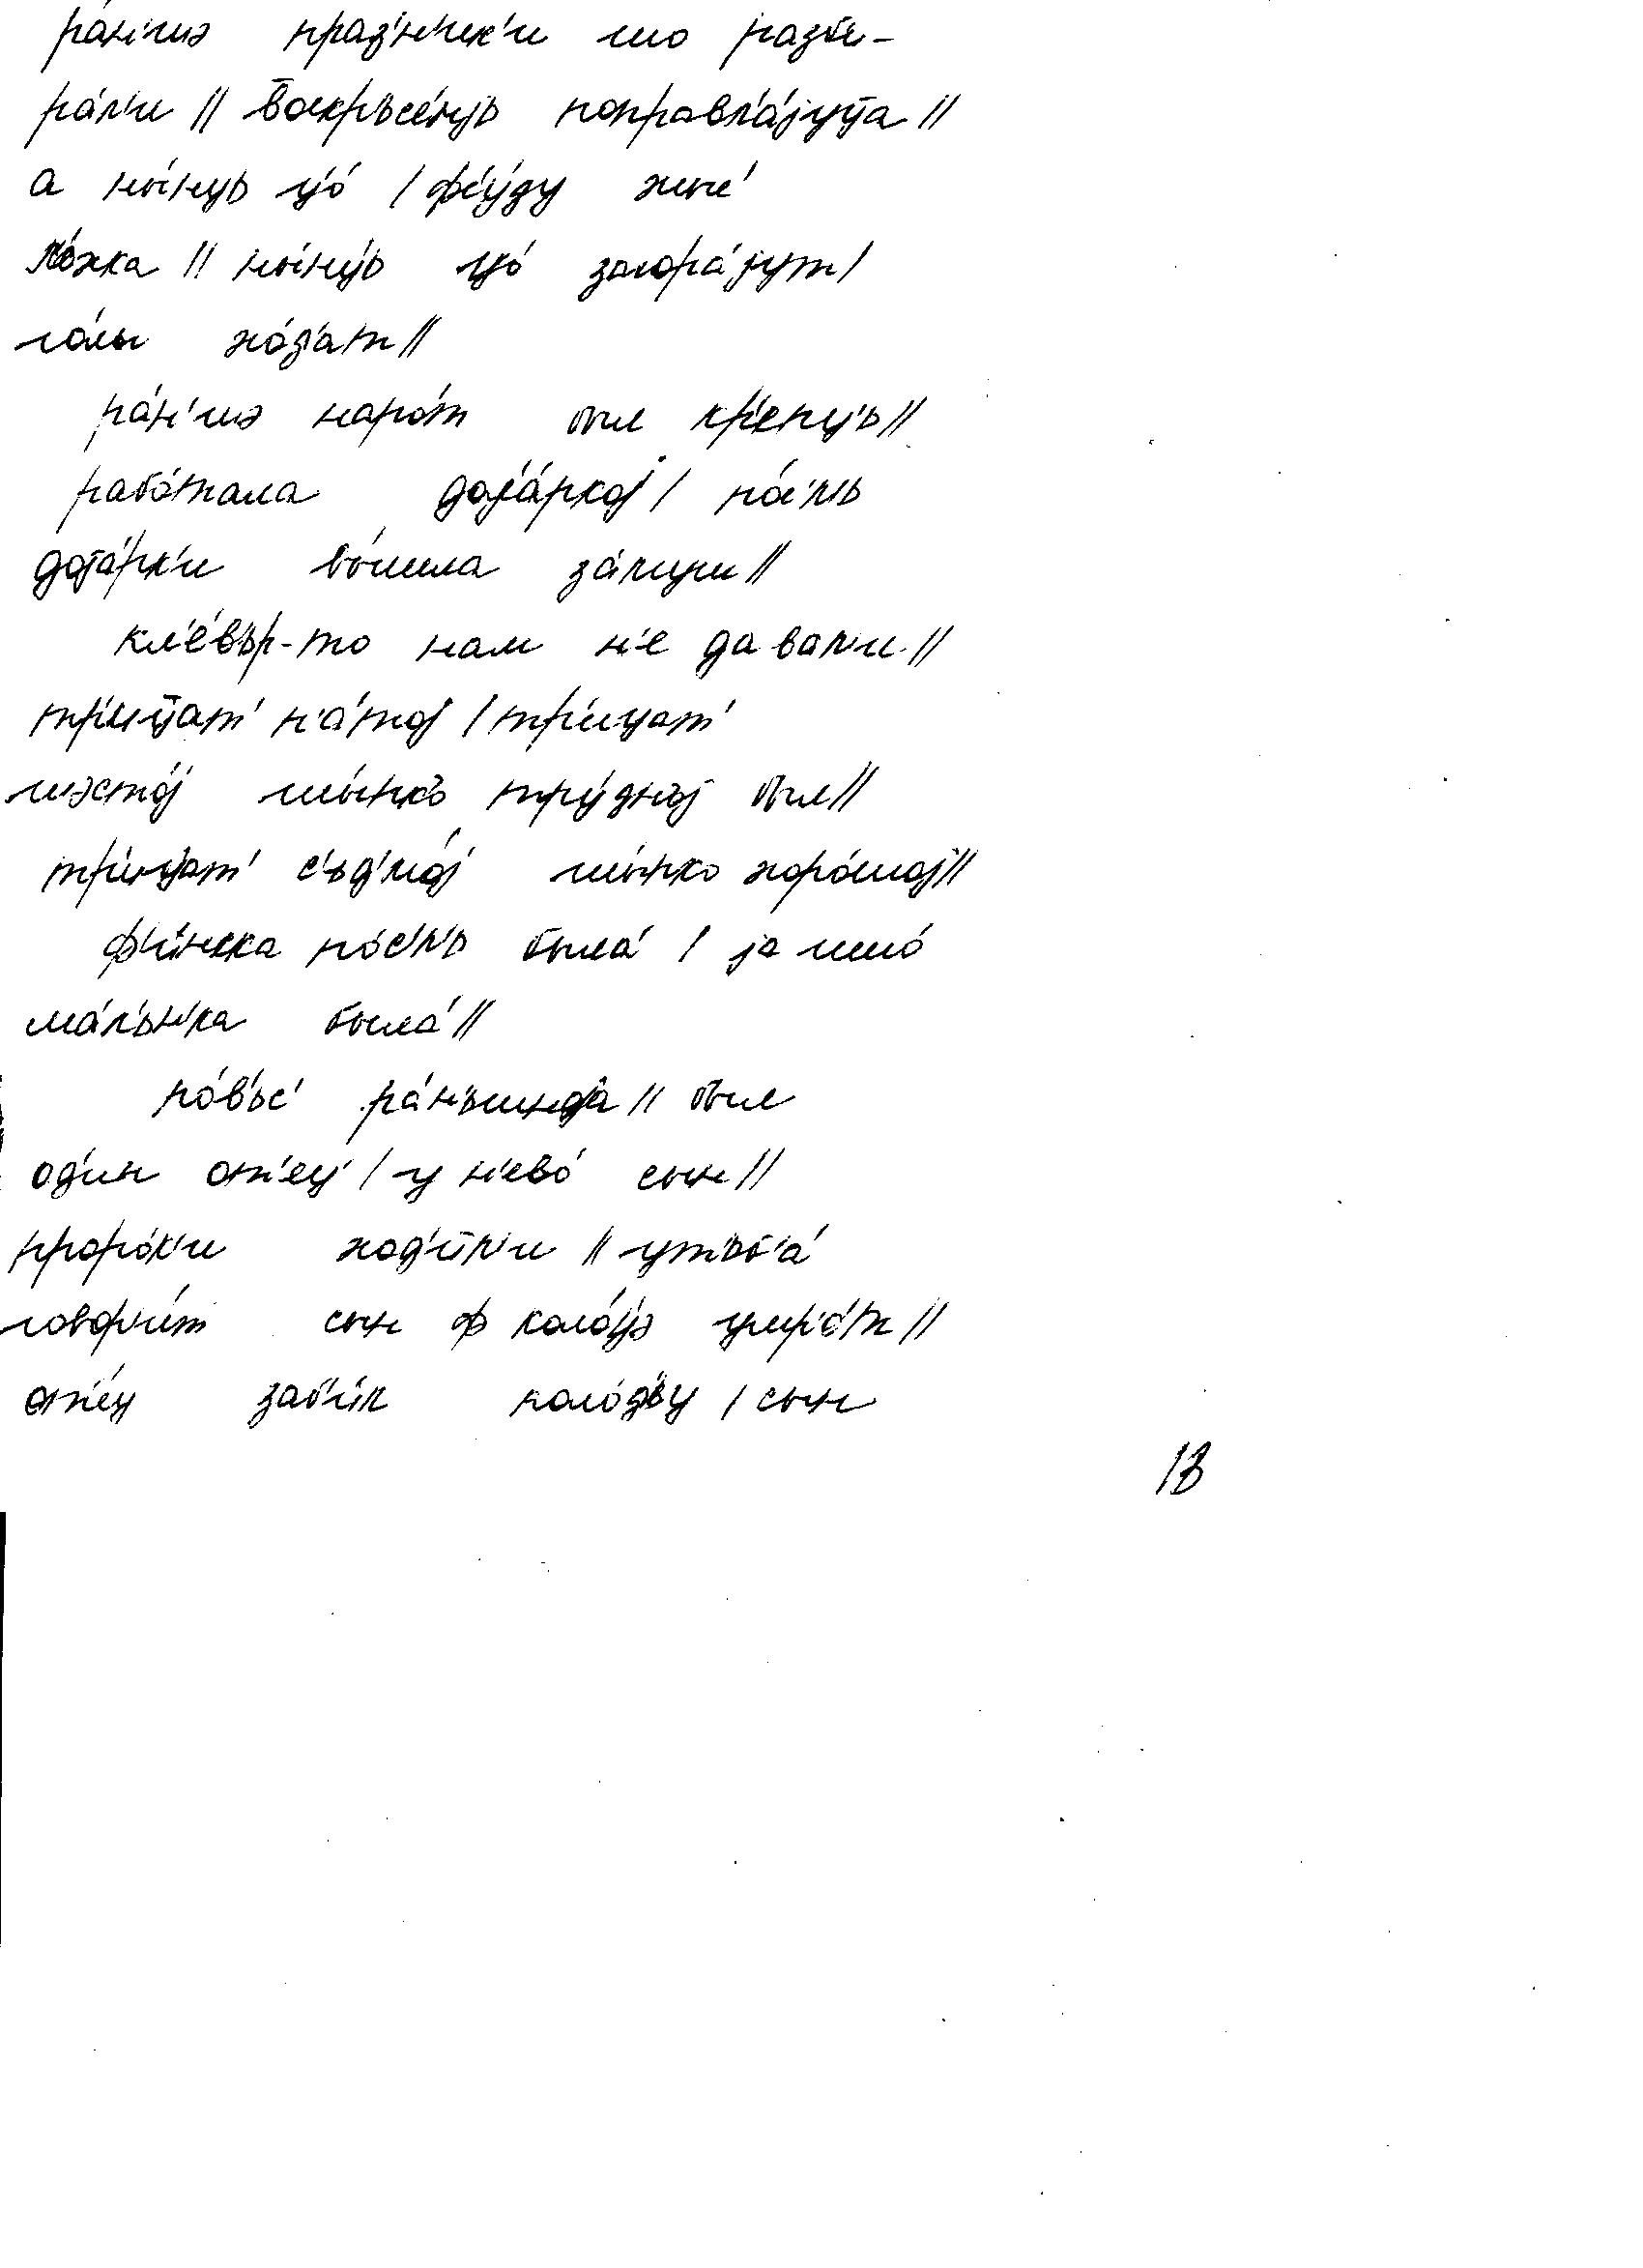 ра́н'шэ праз'н'ик'и шо разби-
ра́л'и || воскр'ьсе́н'jь поправл'а́jуц̄а ||
а ны́н'ц'ь ц'о́ / фс'у́ду жы́
л'о́жка || ны́н'ц'ь ц'о́ загора́jут /
го́лы хо́д'ат ||
ра́н'шэ наро́т был кр'епц'ь ||
рабо́тала доjа́ркоj / по́с'л'ь
доjа́рк'и вы́шла за́муш ||
кл'е́в'ьр-то нам н'е давал'и ||
тр'иц̄ат' п'а́тоj / тр'и́цат'
шэсто́j шы́пко тру́дноj был ||
тр'и́цат' с'ьд'мо́j шы́пко хоро́шоj ||
ф'и́нска по́с'л'ь была́ / jа ишшо́
ма́л'ьн'ка была́ ||
по́в'ьс' ра́н'ьшнjа || был
од'ин от'ец' / у н'ево́ сын ||
проро́к'и ход'и́л'и || у т'ьб'а́
говор'и́т сын ф коло́ц'э умр'о́т ||
от'е́ц заб'и́л коло́д'ву / сын
13